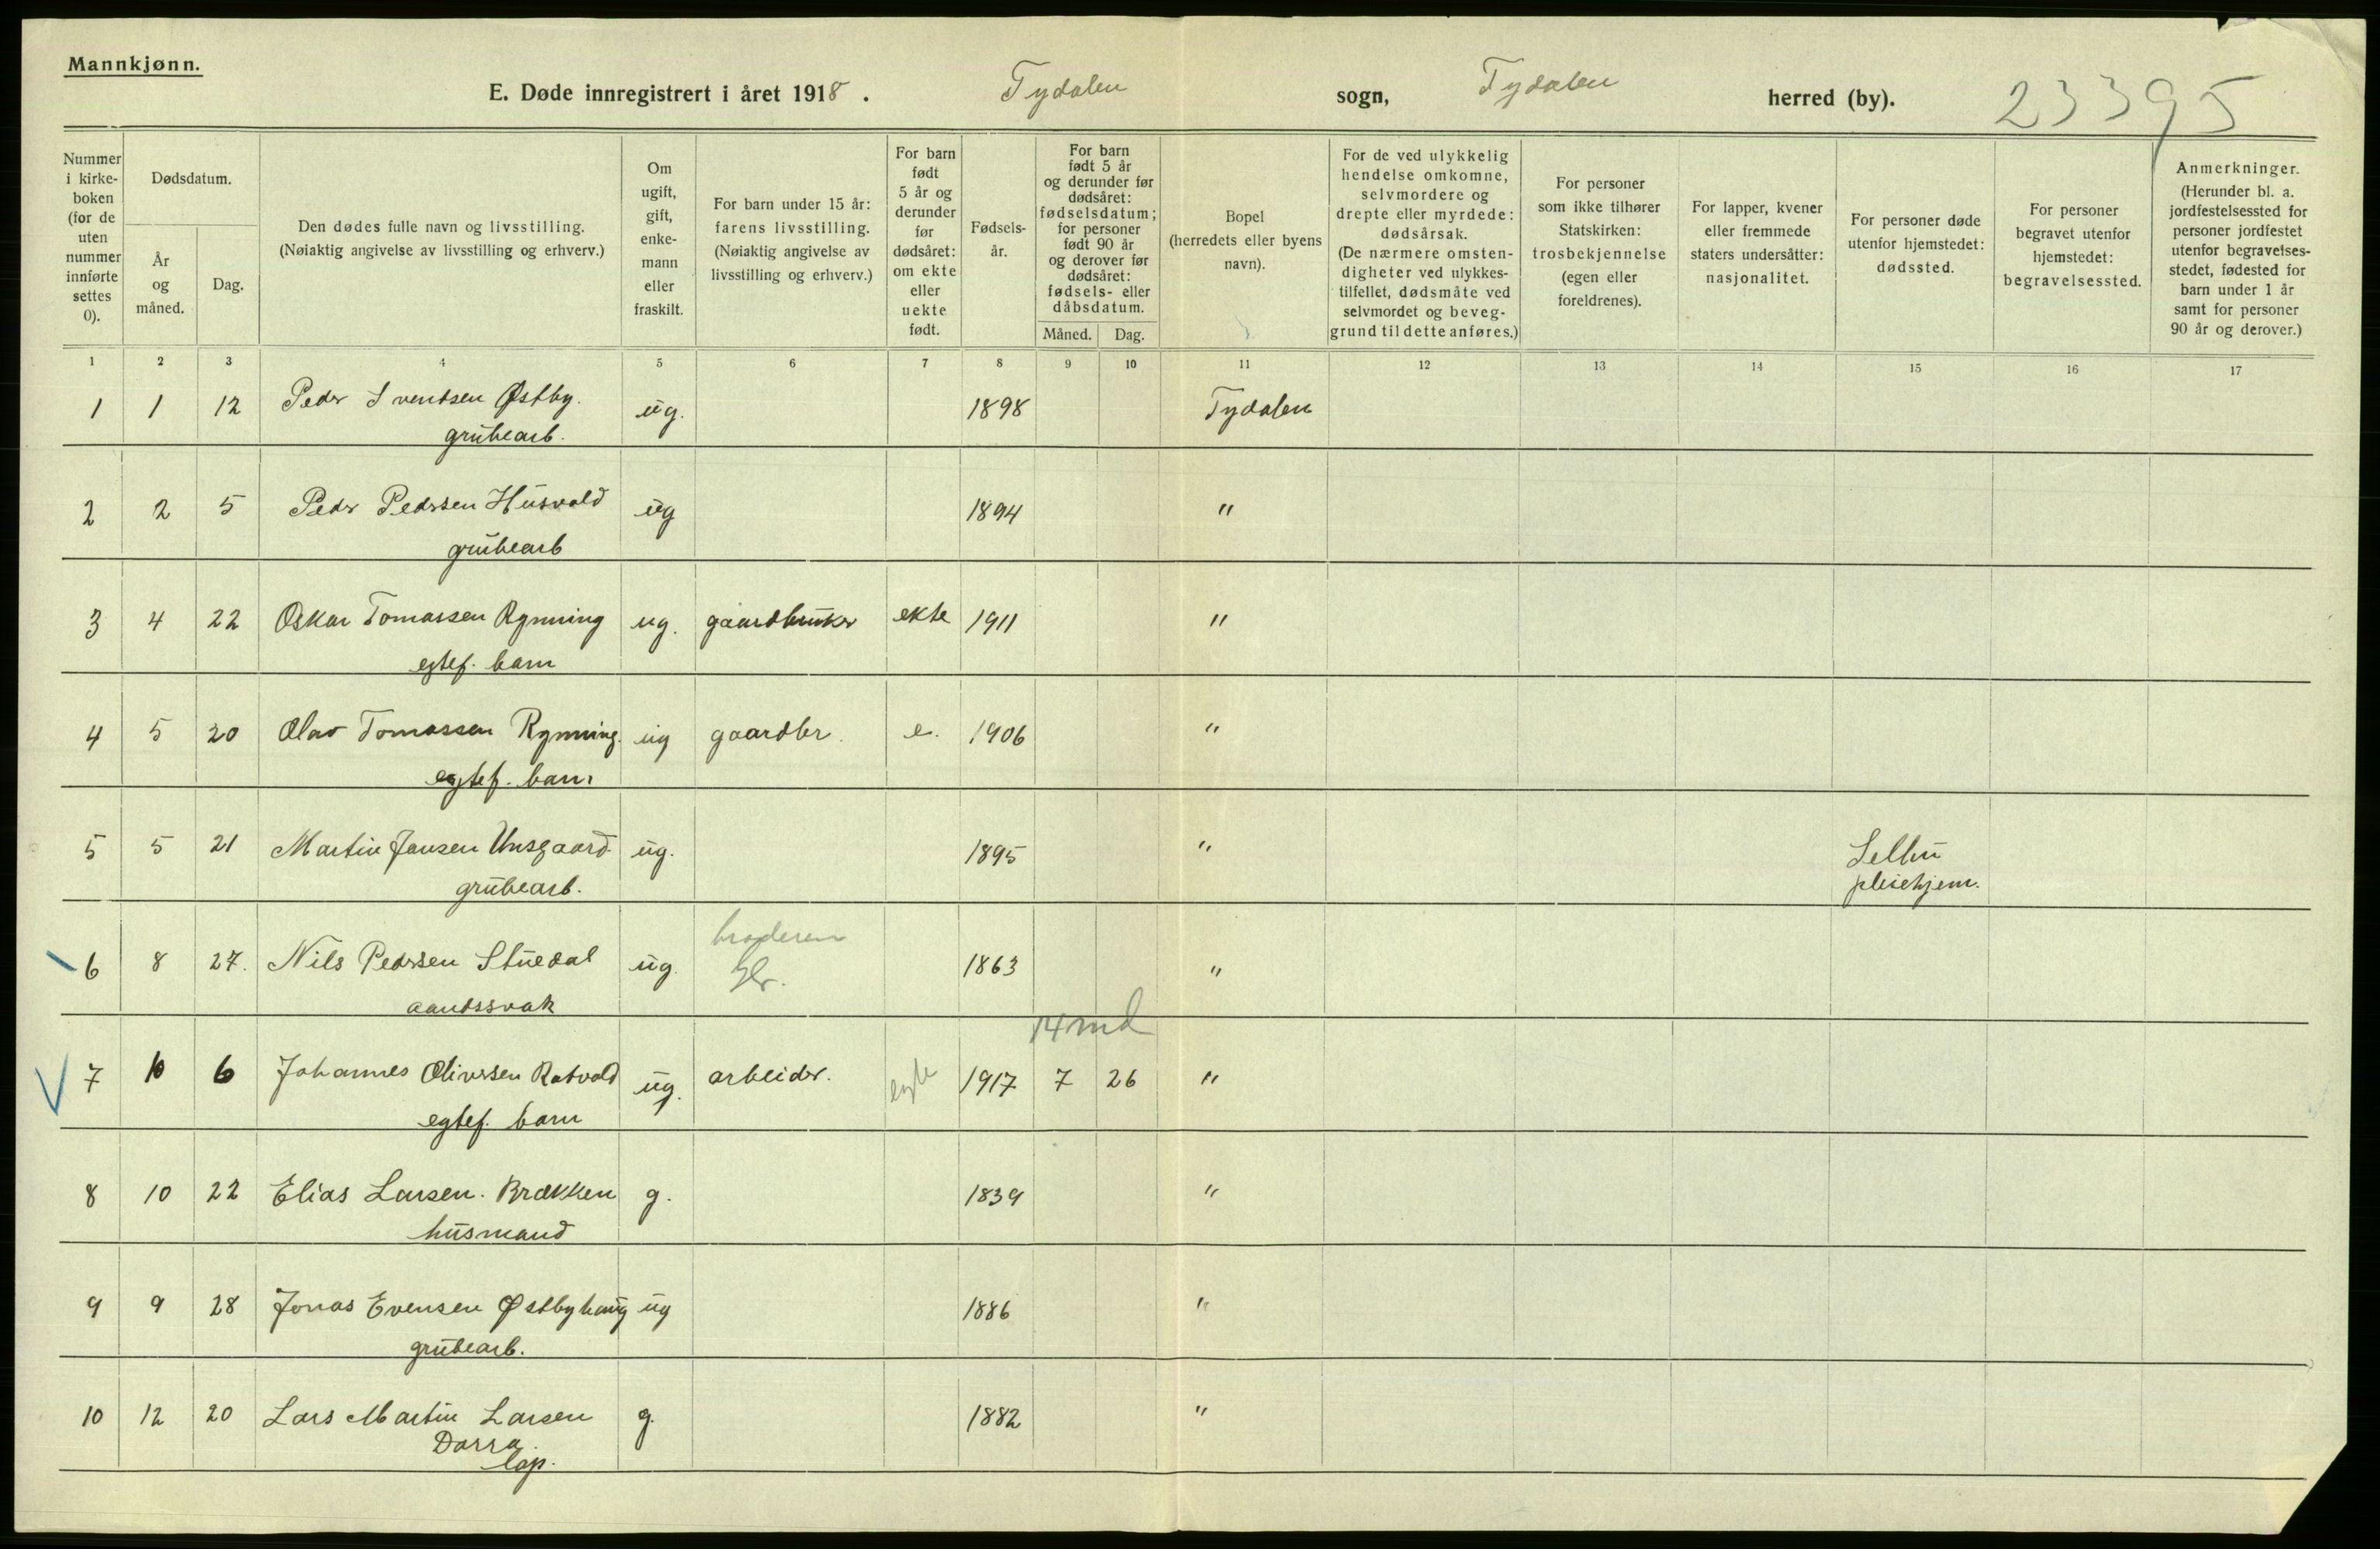 Mannkjønn.
E. Døde innregistrert i året 1918. Tydalen sogn, Tydalen herred (by). 23395
Nummer i kirke- boken (for de uten nummer innførte settes 0).
Dødsdatum.
År og måned.
Dag.
Den dødes fulle navn og livsstilling. (Nøiaktig angivelse av livsstilling og erhverv.)
Om ugift, gift, enke- mann eller fraskilt.
For barn under 15 år: farens livsstilling. (Nøiaktig angivelse av livsstilling og erhverv.)
For barn født 5 år og derunder før dødsåret: om ekte eller uekte født.
Fødsels- år.
For barn født 5 år og derunder før dødsåret: fødselsdatum; for personer født 90 år og derover før dødsåret: fødsels- eller dåbsdatum.
Måned. Dag.
Bopel (herredets eller byens navn).
For de ved ulykkelig hendelse omkomne, selvmordere og drepte eller myrdede: dødsårsak. (De nærmere omsten- digheter ved ulykkes- tilfellet, dødsmåte ved selvmordet og beveg- grund til dette anføres.)
For personer som ikke tilhører Statskirken: trosbekjennelse (egen eller foreldrenes).
For lapper, kvener eller fremmede staters undersåtter: nasjonalitet.
For personer døde utenfor hjemstedet: dødssted.
For personer begravet utenfor hjemstedet: begravelsessted.
Anmerkninger. (Herunder bl. a. jordfestelsessted for personer jordfestet utenfor begravelses- stedet, fødested for barn under 1 år samt for personer 90 år og derover.)
1 2 3 4 5 6 7 8 9 10 11 12 13 14 15 16 17
1 1 12 Peder Sventsen Østby. ug. 1898 Tydalen
grubearb.
2 2 5 Peder Pedersen Husvold ug 1894 "
grubearb
3 4 22 Oskar Tomassen Rynning ug. gaardbruker ekte 1911 "
egtef. barn
4 5 20 Olav Tomassen Rynning. ug gaardbr. e. 1906 "
egtef. barn
5 5 21 Martin Jansen Unsgaard. ug. 1895 " Selbu
grubearb. pleiehjem.
broderen
6 8 27. Nils Pedersen Stuedal ug. gbr. 1863 "
aandssvak
14 md
7 10 6 Johannes Oliversen Rotvold ug. arbeider. egte 1917 7 26 "
egtef. barn
8 10 22 Elias Larsen. Brækken g. 1839 "
husmand
9 9 28 Jonas Evensen Østbyhaug ug 1886 "
grubearb.
10 12 20 Lars Martin Larsen g. 1882 "
Dorra.
lap.